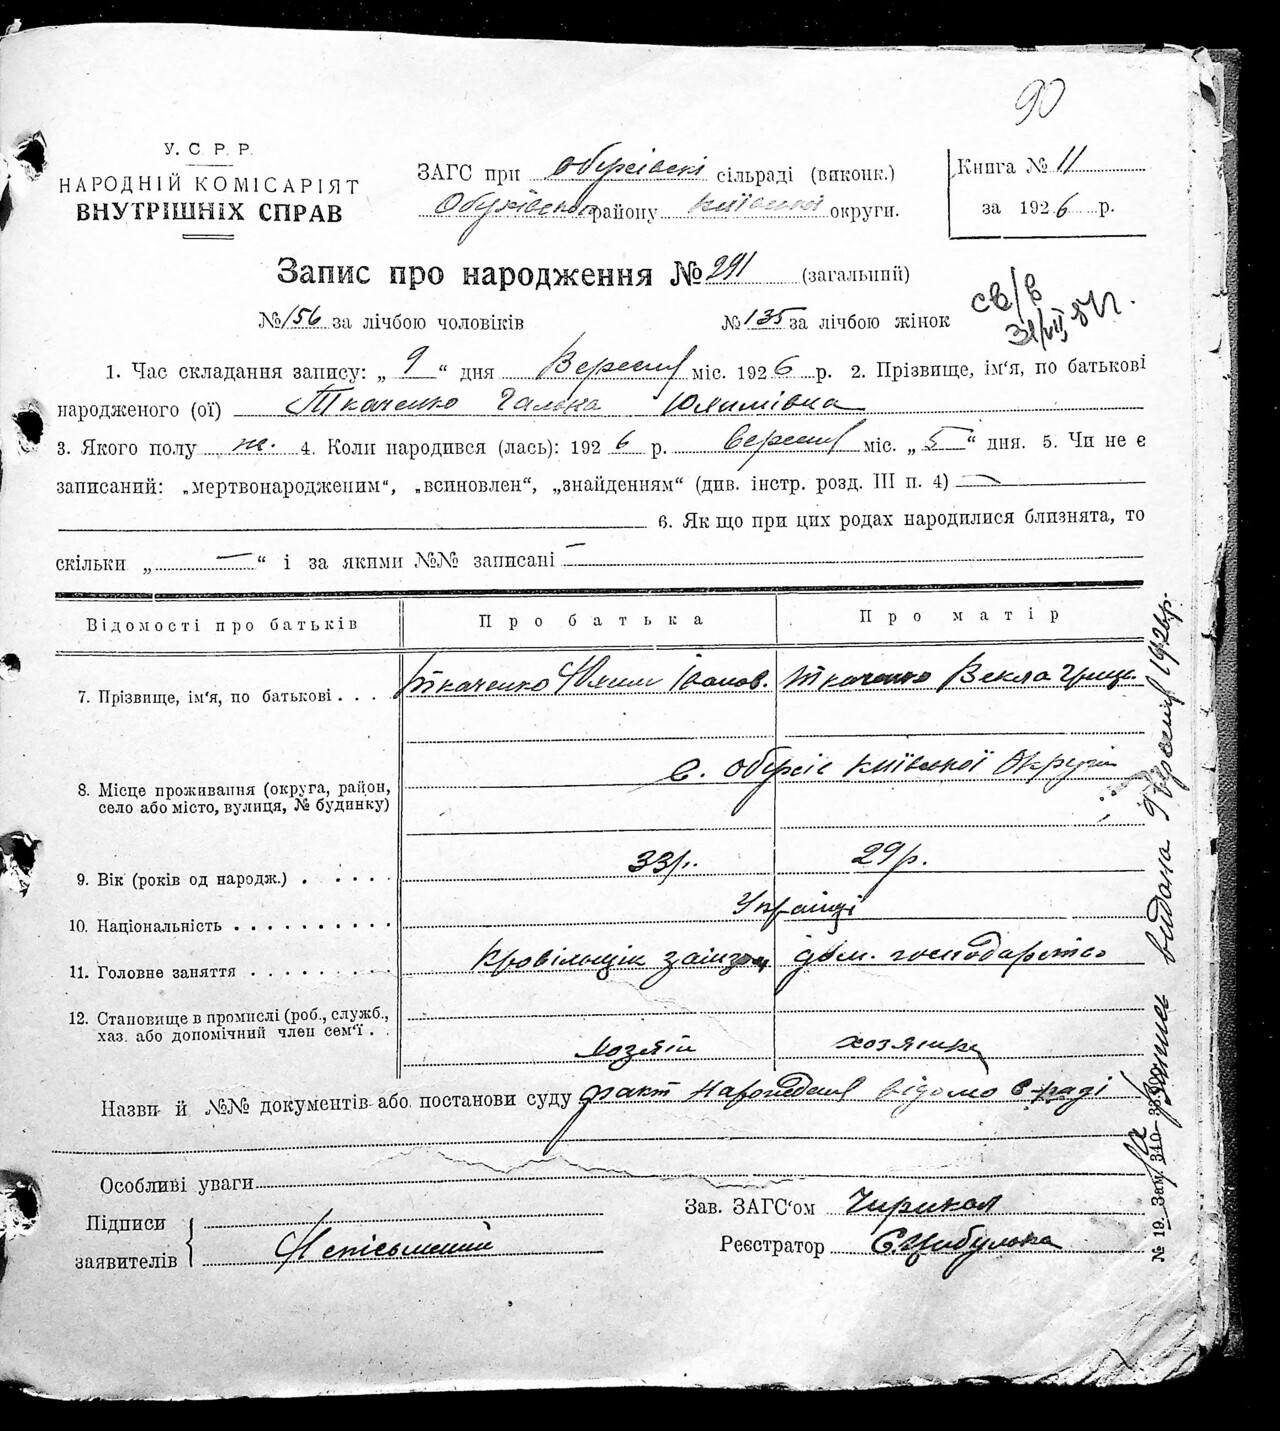 90
У. С. Р. Р.
НАРОДНІЙ КОМІСАРІЯТ
ВНУТРІШНІХ СПРАВ
ЗАГС при сільраді (виконк.)
району Київської округи.
Книга № 11
за 1926 р.
Запис про народження № 291 (загальний)
№ 156 за лічбою чоловіків № 135 за лічбою жінок
св/в
1. Час складання запису: „ 9 “ дня Вересня міс. 1926 р. 2. Прізвище, ім'я, по батькові
народженого (ої) Ткаченко Галька Юхимівна
3. Якого полу ж. 4. Коли народився (лась): 1926 р. вересня міс. „ 5 “ дня. 5. Чи не є
записаний: „мертвонародженим“, „всиновлен“, „знайденням“ (див. інстр. розд. III п. 4) —
6. Якщо при цих родах народилися близнята, то
скільки „ — “ і за якими №№ записані —
Відомості про батьків Про батька Про матір
7. Прізвище, ім'я, по батькові . . . Ткаченко Юхим Іванов. Ткаченко Векла Гриц.
8. Місце проживання (округа, район, с. Київської Округи
село або місто, вулиця, № будинку)
9. Вік (років од народж.) . . . . . 33 р. 29 р.
10. Національність . . . . . . . . . . Українці
11. Головне заняття . . . . . . . . дом. господарство
12. Становище в промислі (роб., служб.,
хаз. або допомічний член сем'ї . . хозяїн хозяйка
Назви й №№ документів або постанови суду факт Народження відомо в раді
Особливі уваги
Підписи
заявителів Неписьменний
Зав. ЗАГС'ом
Реєстратор Є. Цибулька
видана 9 Вересня 1926 р.
№ 19. Зам. 340